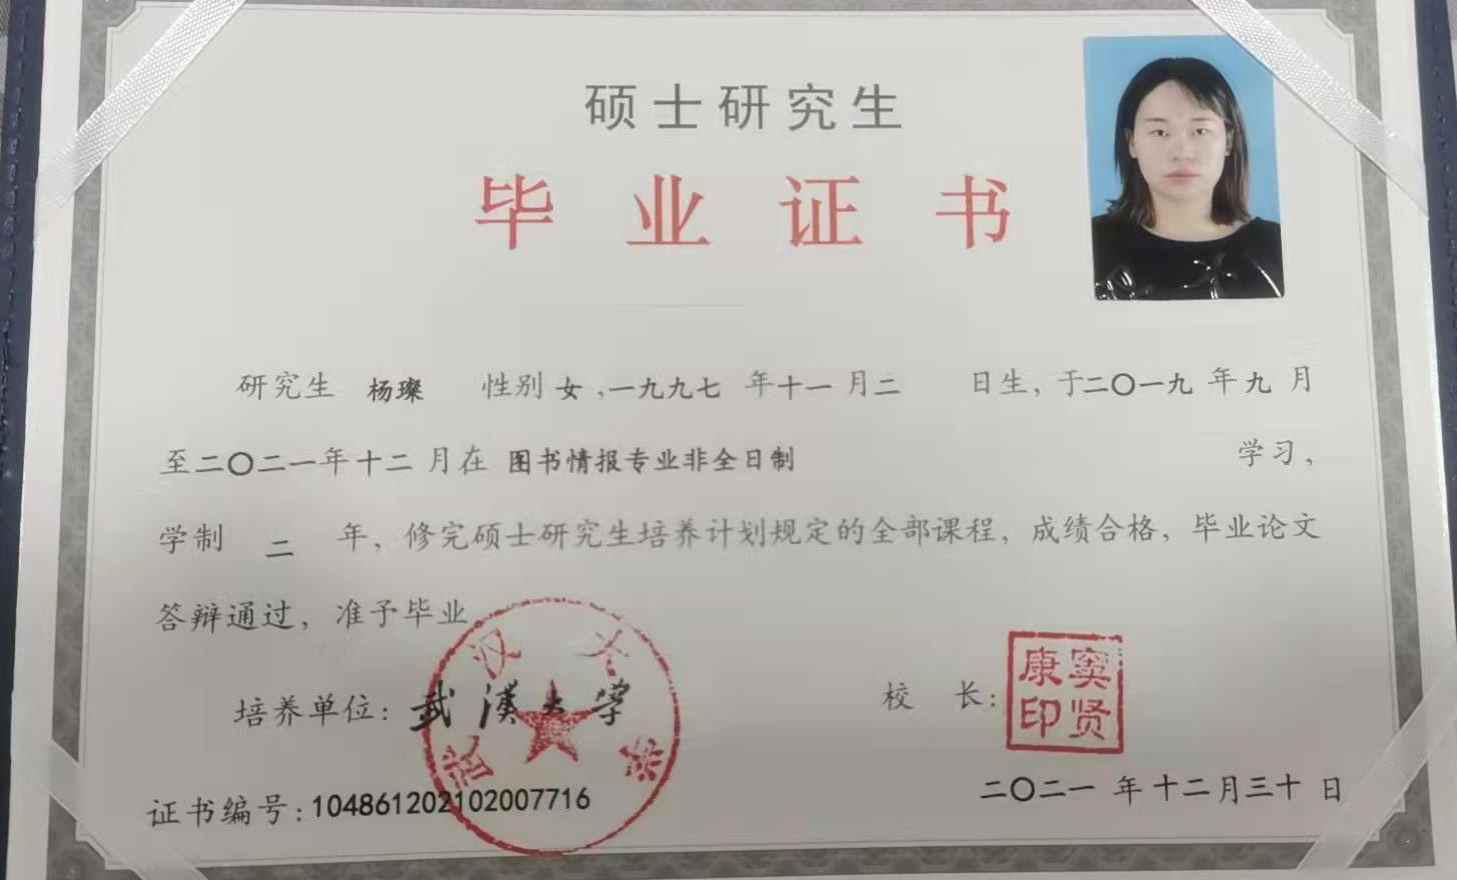 硕士研究生
毕业证书
研究生 杨璨 性别 女，一九九七 年十一月二 日生，于二〇一九 年九 月
至二〇二一年十二 月在 图书情报专业非全日制 学习，
学制 二 年，修完硕士研究生培养计划规定的全部课程，成绩合格，毕业论文
答辩通过，准予毕业。
培养单位：武漢大学 校 长：
武汉大学
窦贤康印
证书编号：104861202102007716
二〇二一 年十二月三十 日